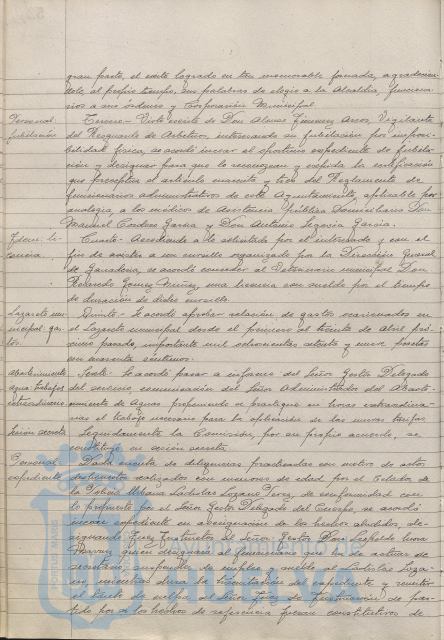 gran parte, el éxito logrado en tan memorable jornada, agradecién-
dole, al propio tiempo, sus palabras de elogio a la Alcaldía, funciona-
rios a sus órdenes y Corporación Municipal.
Personal. Tercero.- Visto escrito de Don Jimenez Arcos, Vigilante
jubilación del Resguardo de Arbitrios, interesando su jubilación por imposi-
bilidad física, se acordó incoar el oportuno expediente de jubila-
ción y designar para que le reconozcan y expida la certificación
que preceptúa el artículo cuarenta y tres del Reglamento de
funcionarios administrativos de este Ayuntamiento, aplicable por
analogía, a los médicos de Asistencia Pública Domiciliaria Don
Manuel Cardoso García y Don Antonio Segovia García.
Idem. li- Cuarto.- Accediendo a lo solicitado por el interesado y con el
cencia. fin de asistir a un cursillo organizado por la Dirección General
de Ganadería, se acordó conceder al Veterinario municipal Don
Gomez una licencia con sueldo por el tiempo
de duración de dicho cursillo.
Lazareto mu- Quinto.- Se acordó aprobar relación de gastos ocasionados en
nicipal gas- el Lazareto municipal desde el primero al treinta de Abril pró-
tos. ximo pasado, importante mil ochocientas ochenta y nueve pesetas
con cuarenta céntimos.
Abastecimiento Sexto.- Se acordó pasar a informe del Señor Gestor Delegado
agua trabajos del servicio, comunicación del Señor Administrador del Abaste-
extraordinarios cimiento de Aguas proponiendo se practique en horas extraordina-
rias el trabajo necesario para la aplicación de las nuevas tarifas.
Sesión secreta Seguidamente la Comisión, por su propio acuerdo, se
constituyó en sesión secreta.
Personal. Dada cuenta de diligencias practicadas con motivo de actos
expediente deshonestos realizados con menores de edad por el Celador de
la Policía Urbana Ladislao Lozano Perez, de conformidad con
lo propuesto por el Señor Gestor Delegado del Cuerpo, se acordó
incoar expediente en averiguación de los hechos aludidos, de-
signando Juez Instructor al Señor Gestor Don Leopoldo
quien designará al funcionario que ha de actuar de
secretario, suspender de empleo y sueldo al Ladislao Loza-
no, mientras dura la tramitación del expediente y remitir
el tanto de culpa al Señor Juez de Instrucción de par-
tido por si los hechos de referencia fueran constitutivos de